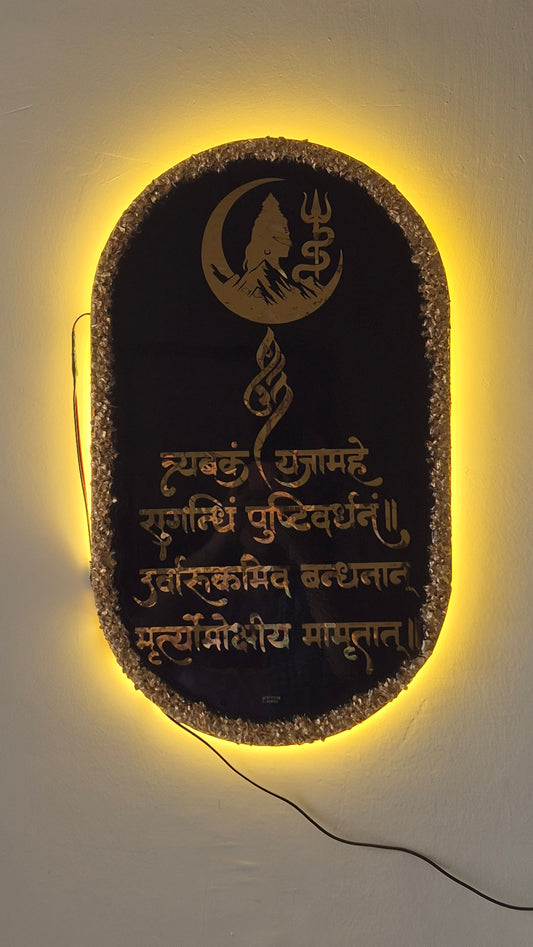 ॐ
त्र्यबकं यजामहे
सुगन्धिं पुष्टिवर्धनं॥
उर्वारुकमिव बन्धनान्
मृर्त्योमोक्षीय मामृतात्॥